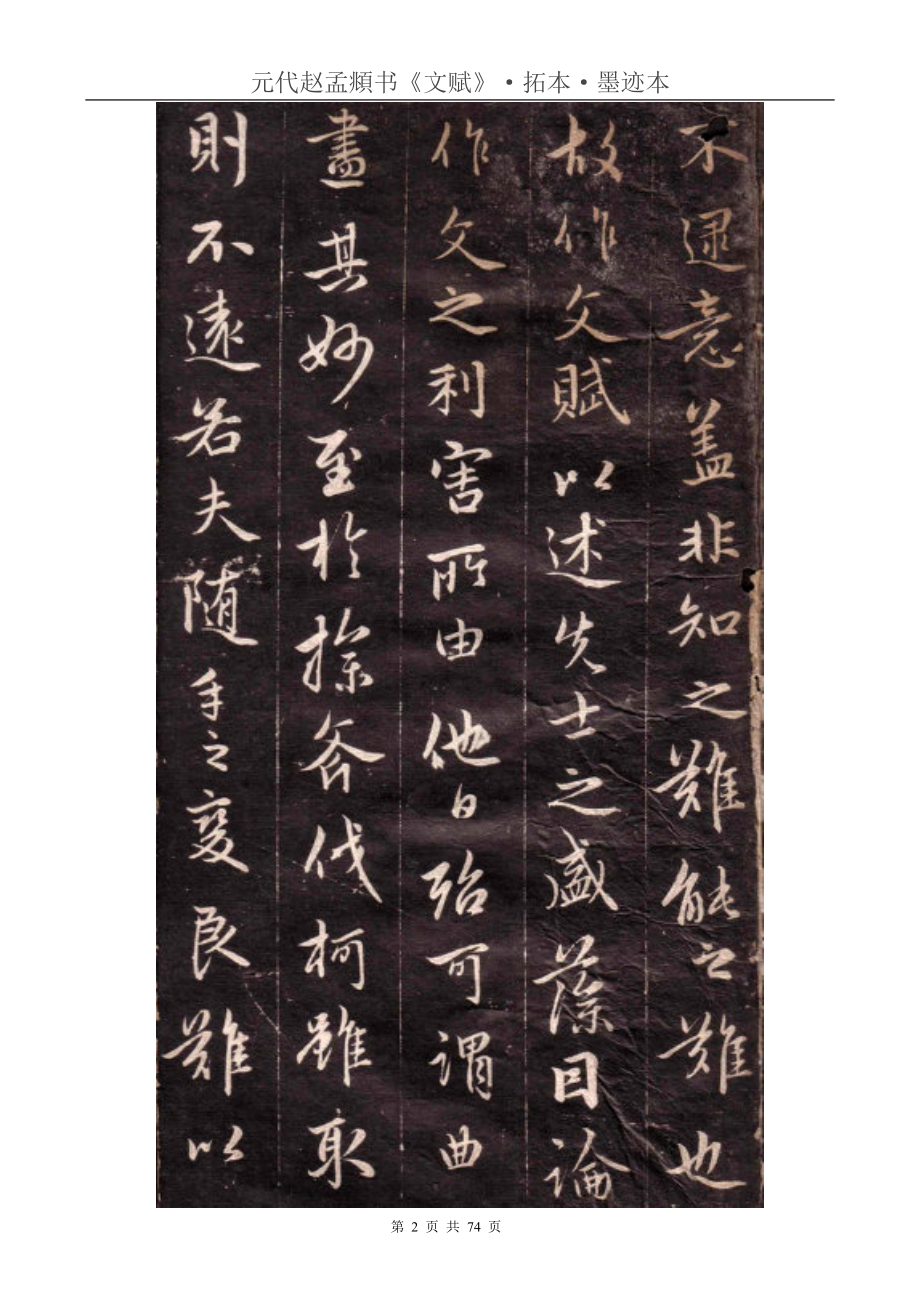 元代赵孟頫书《文赋》·拓本·墨迹本
不逮意盖非知之難能之難也
故作文賦以述先士之盛藻因論
作文之利害所由他日殆可謂曲
盡其妙至於操斧伐柯雖取
則不遠若夫随手之變良難以
第 2 页 共 74 页